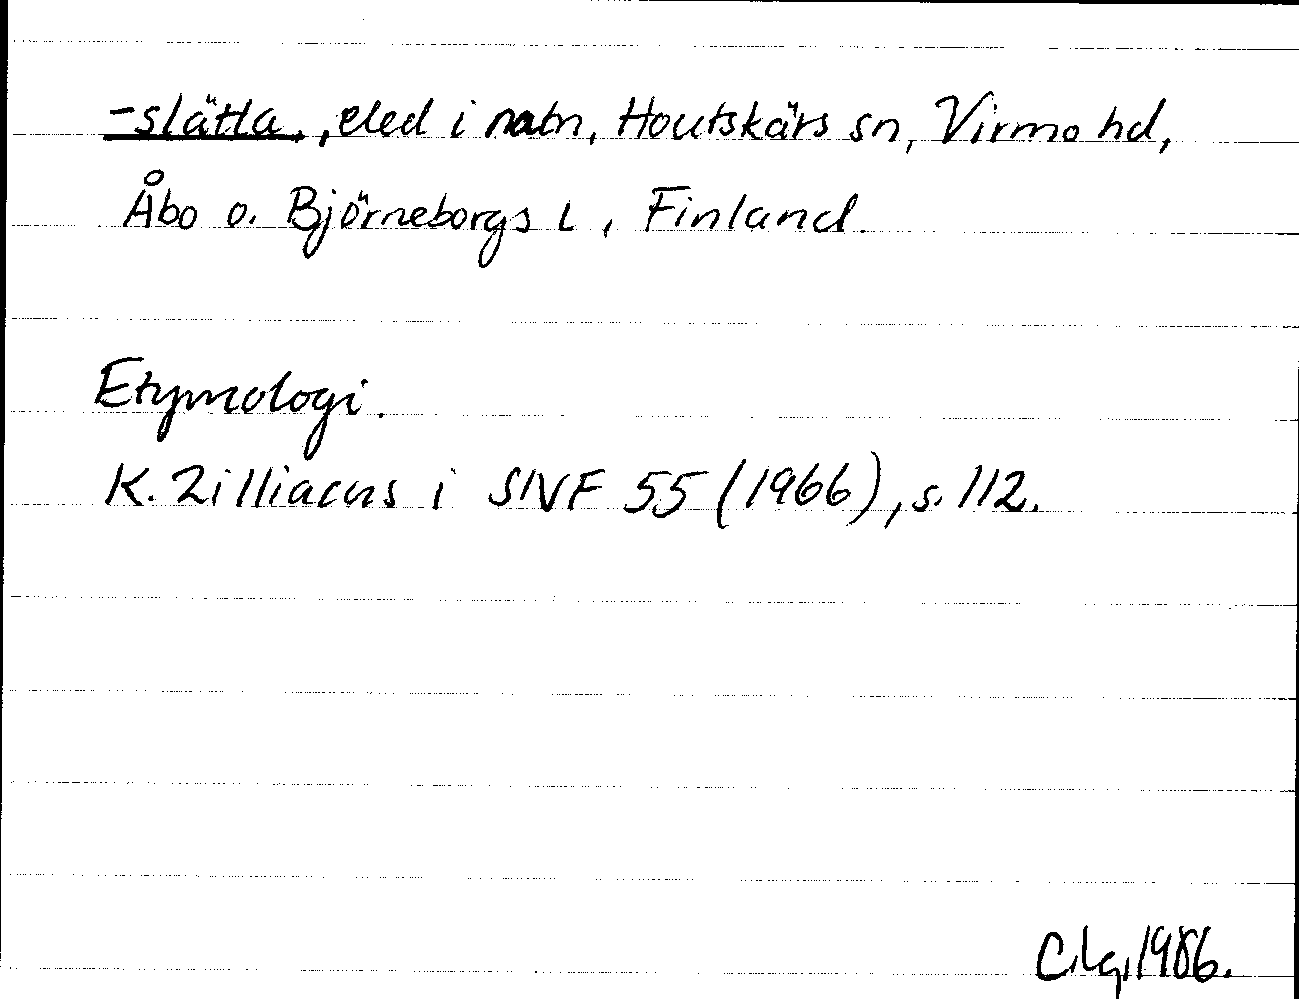 -slätta, eled i natn, Houtskärs sn, Virmo hd,
Åbo o. Björneborgs L, Finland.
Etymologi.
K. Zilliacus i SNF 55 (1966), s. 112.
1986.